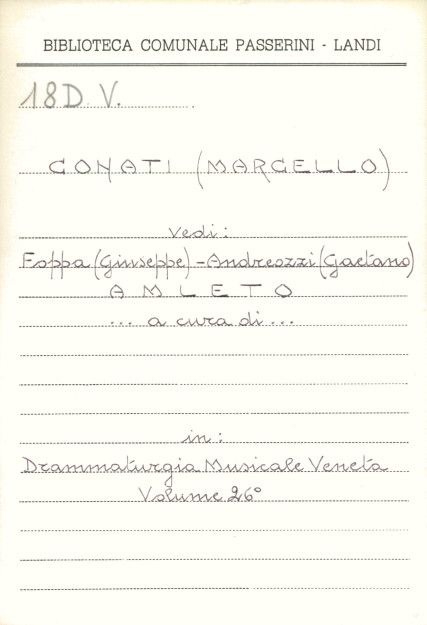 BIBLIOTECA COMUNALE PASSERINI - LANDI
18 D. V.
CONATI (MARCELLO)
Vedi:
Foppa (Giuseppe) - Andreozzi (Gaetano)
AMLETO
... a cura di ...
in:
Drammaturgia Musicale Veneta
Volume 26°